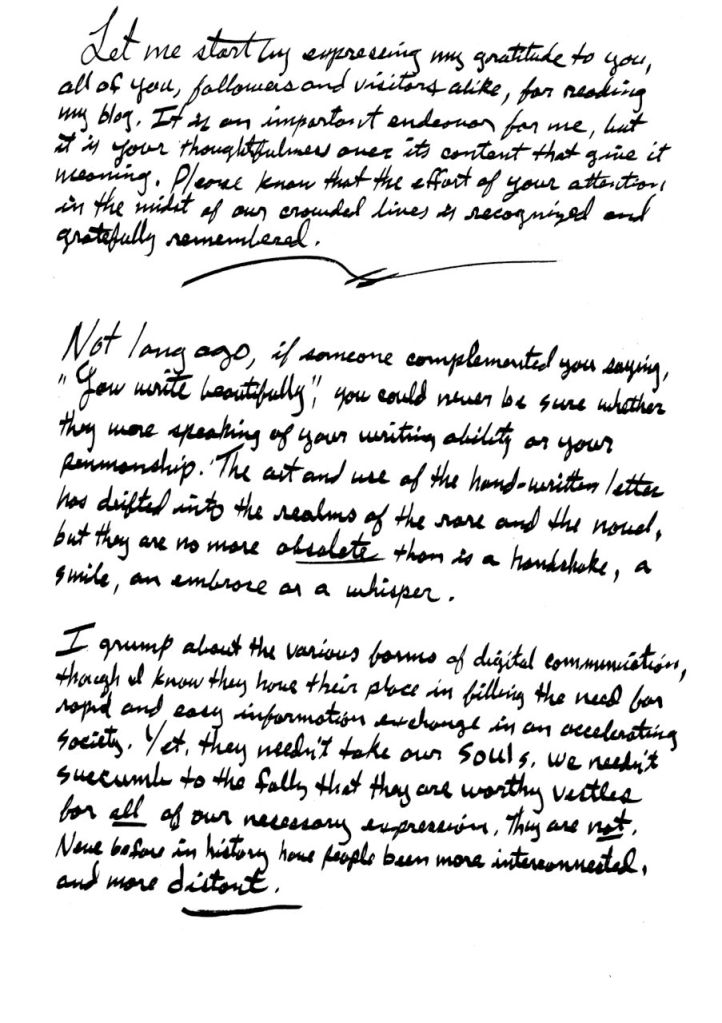 Let me start by expressing my gratitude to you,
all of you, followers and visitors alike, for reading
my blog. It is an important endeavor for me, but
it is your thoughtfulness over its content that give it
meaning. Please know that the effort of your attention
in the midst of our crowded lives is recognized and
gratefully remembered.
Not long ago, if someone complemented you saying,
"You write beautifully", you could never be sure whether
they were speaking of your writing ability or your
penmanship. The art and use of the hand-written letter
has drifted into the realms of the rare and the novel,
but they are no more obsolete than is a handshake, a
smile, an embrace or a whisper.
I grump about the various forms of digital communiction,
though I know they have their place in filling the need for
rapid and easy information exchange in an accelerating
society. Yet, they needn't take our souls. We needn't
succumb to the folly that they are worthy vestles
for all of our necessary expression. They are not.
Neve before in history have people been more interconnected,
and more distant.